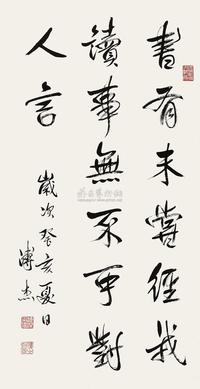 書有未嘗經我
讀事無不可對
人言
歲次癸亥夏日
溥杰